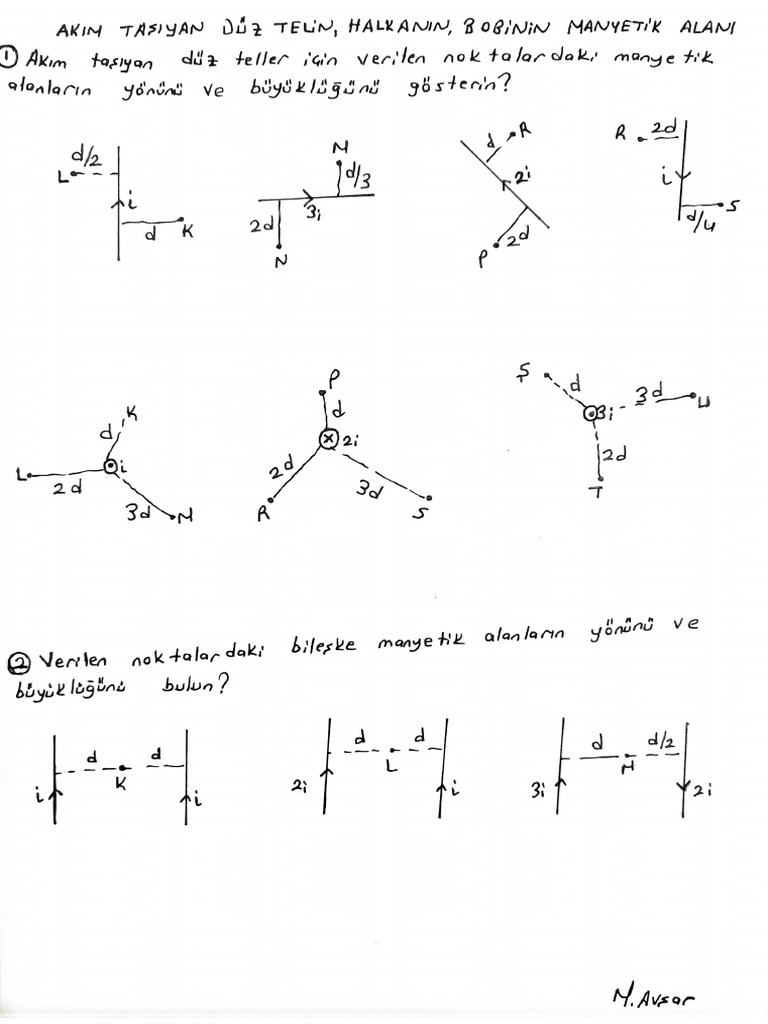 AKIM TAŞIYAN DÜZ TELİN, HALKANIN, BOBİNİN MANYETİK ALANI
① Akım taşıyan düz teller için verilen noktalardaki manyetik
alanların yönünü ve büyüklüğünü gösterin?
d/2
L
i
d
K
M
d/3
3i
2d
N
d
R
2i
P
2d
R
2d
i
d/4
S
K
d
i
L
2d
3d
M
P
d
2i
2d
3d
R
S
Ş
d
3i
3d
U
2d
T
② Verilen noktalardaki bileşke manyetik alanların yönünü ve
büyüklüğünü bulun?
d
d
K
i
i
d
d
L
2i
i
d
d/2
M
3i
2i
M. Avşar